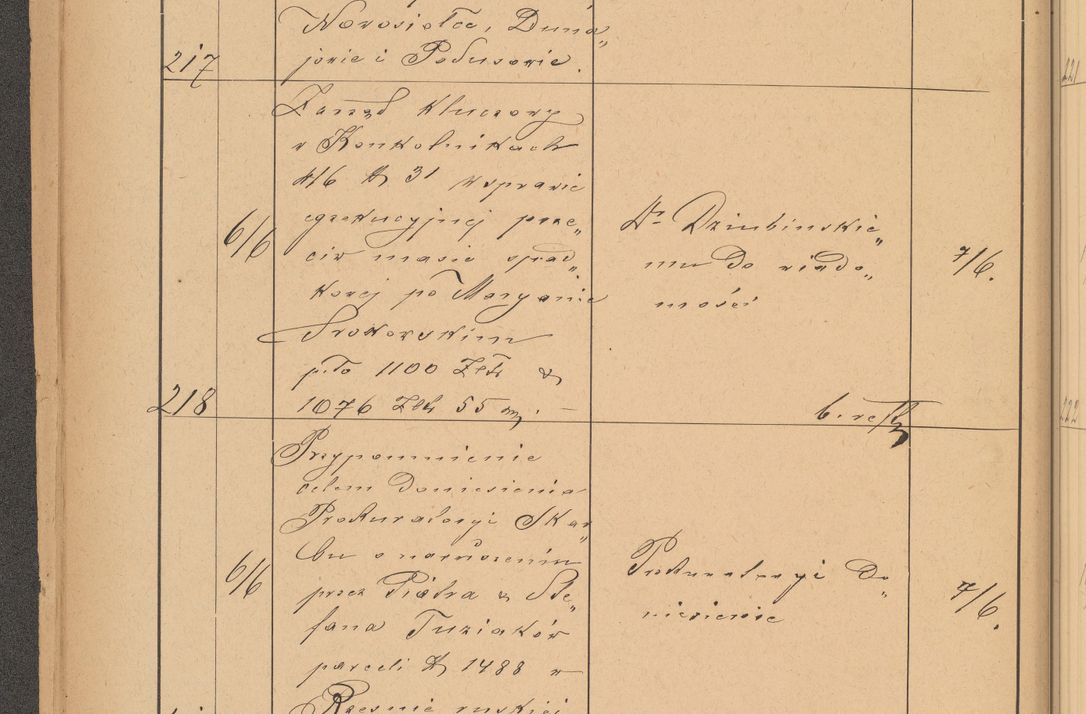 Nowosiołce, Duna„
217 jowie i Podusowie.
Zarząd kluczowy
w Konkolnikach
416 & 31 w sprawie
6/6 egzekucyjnej prze„
ciw masie spad„
kowej po Maryanie
Srokowskim
p.to 1100 Złr &
218 1076 Złr 55 ct. —
Dr Dziubinskie„
mu do wiado„
mości
7/6.
b. rest
Przypomnienie
celem doniesienia
Prokuratoryi Skar„
bu o naruszeniu
6/6 przez Piotra & Ste„
fana Tuziaków
parceli & 1488 w
Rzesnie ruskiej
Prokuratoryi Do„
niesienie
7/6.
221
222